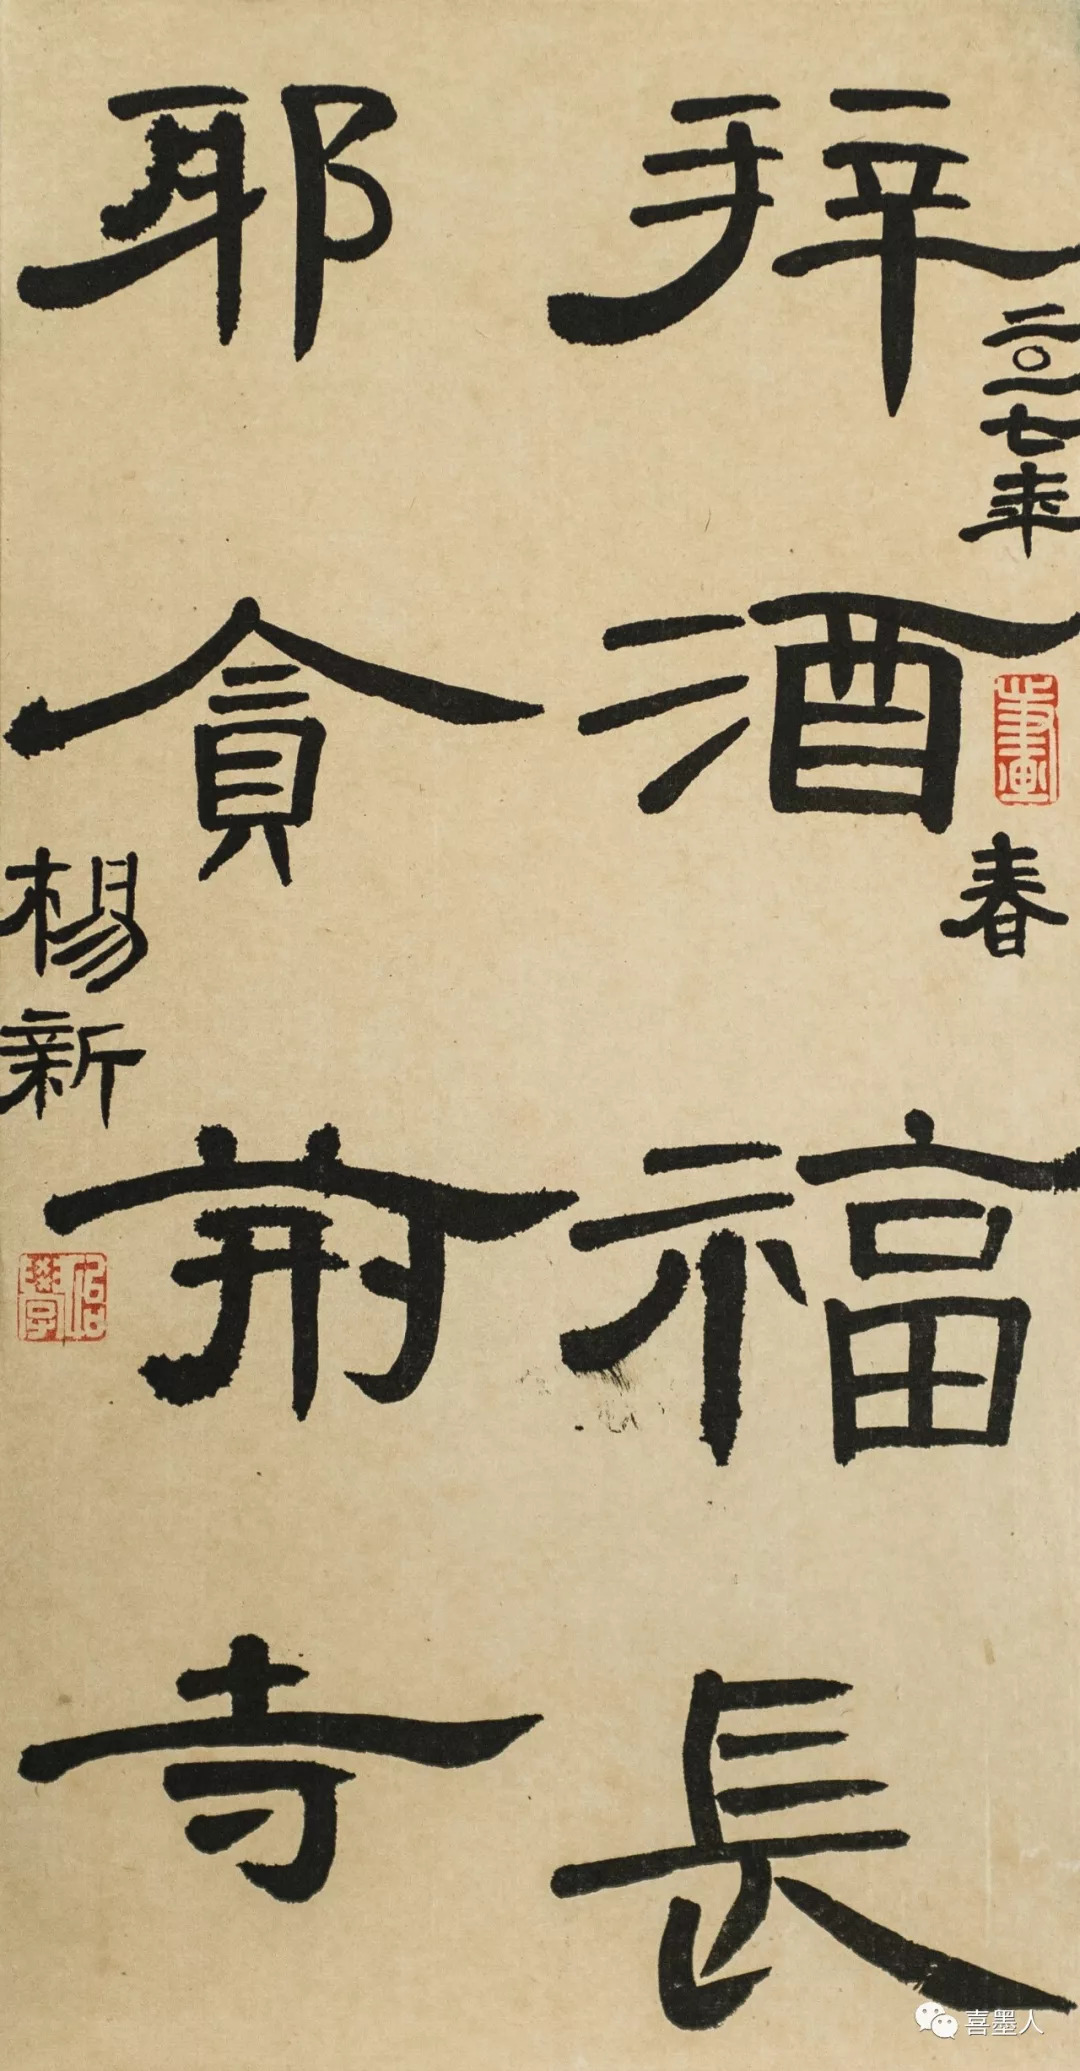 二〇一七年
春
拜酒福長
耶貪前寺
楊新
喜墨人